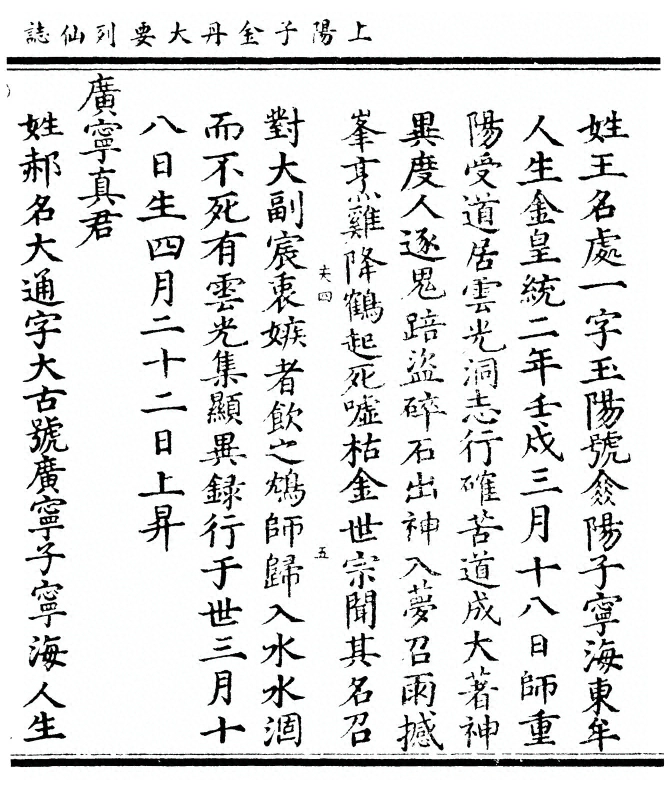 上陽子金丹大要列仙誌
姓王名處一字玉陽號傘陽子寧海東牟
人生金皇統二年壬戌三月十八日師重
陽受道居雲光洞志行確苦道成大著神
異度人逐鬼踣盜碎石出神入夢召雨撼
峯烹雞降鶴起死噓枯金世宗聞其名召
夫四 五
對大副宸衷嫉者飲之鴆師歸入水水涸
而不死有雲光集顯異録行于世三月十
八日生四月二十二日上昇
廣寧真君
姓郝名大通字大古號廣寧子寧海人生